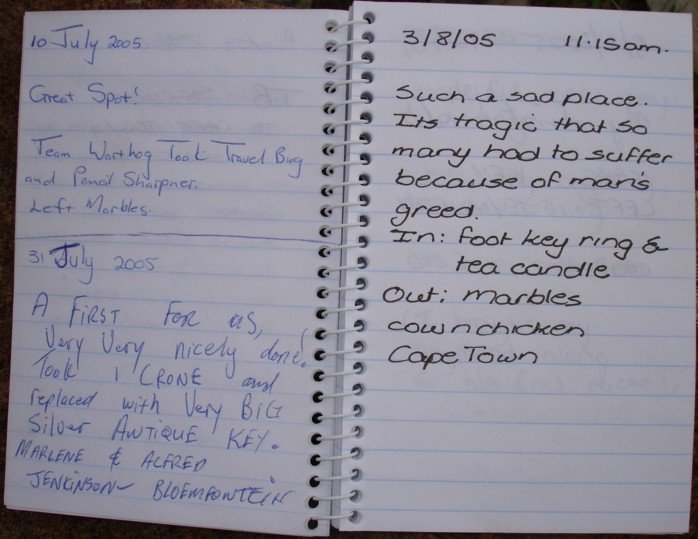 10 July 2005
Great Spot!
Team Warthog Took Travel Bug
and Pencil Sharpner.
Left Marbles.
31 July 2005
A FIRST FOR US,
Very Very nicely done!
Took 1 CRONE and
replaced with Very BIG
Silver ANTIQUE KEY.
MARLENE & ALFRED
JENKINSON - BLOEMFONTEIN
3/8/05 11:15am.
Such a sad place.
Its tragic that so
many had to suffer
because of man's
greed.
In: foot key ring &
tea candle
Out: marbles
cownchicken
Cape Town